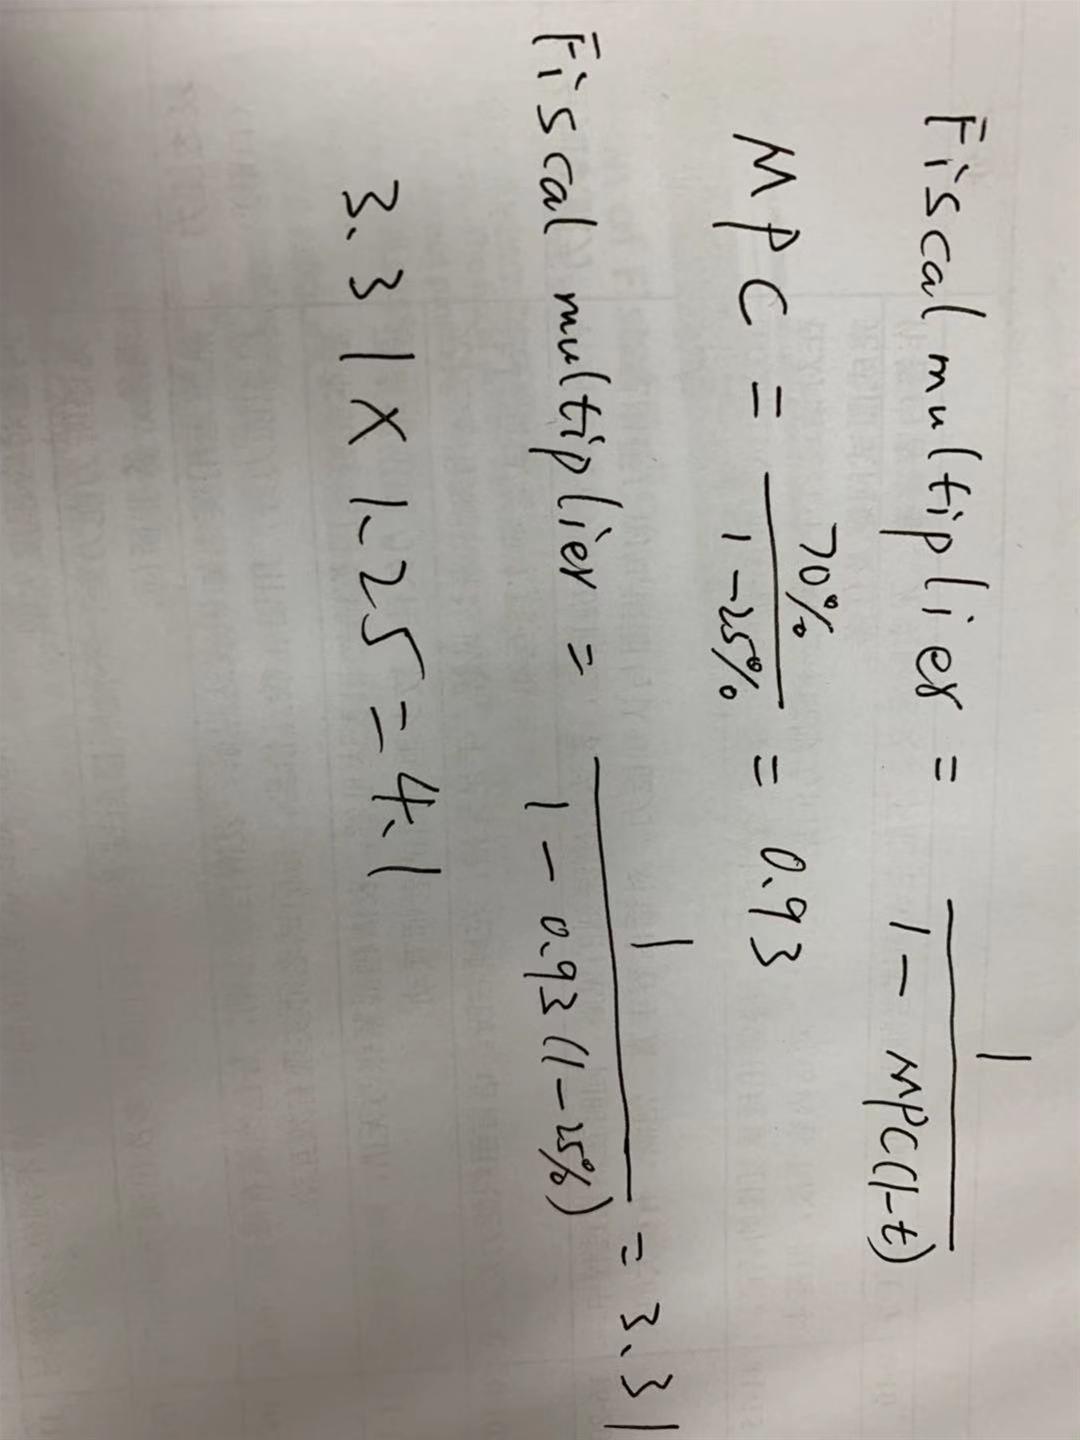 Fiscal multiplier = 1 / 1 - MPC(1-t)
MPC = 70% / 1-25% = 0.93
Fiscal multiplier = 1 / 1 - 0.93(1-25%) = 3.31
3.31 × 1.25 = 4.1